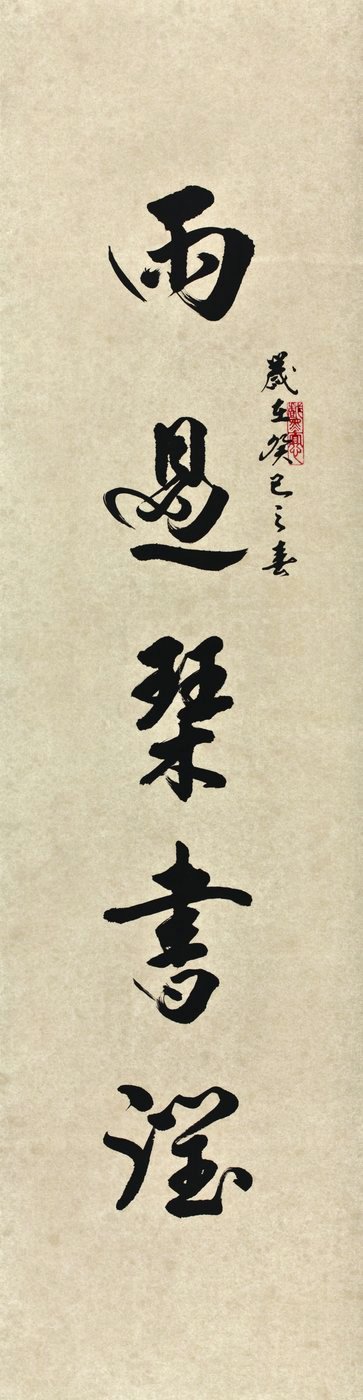 歲在癸巳之春
雨過琴書潤